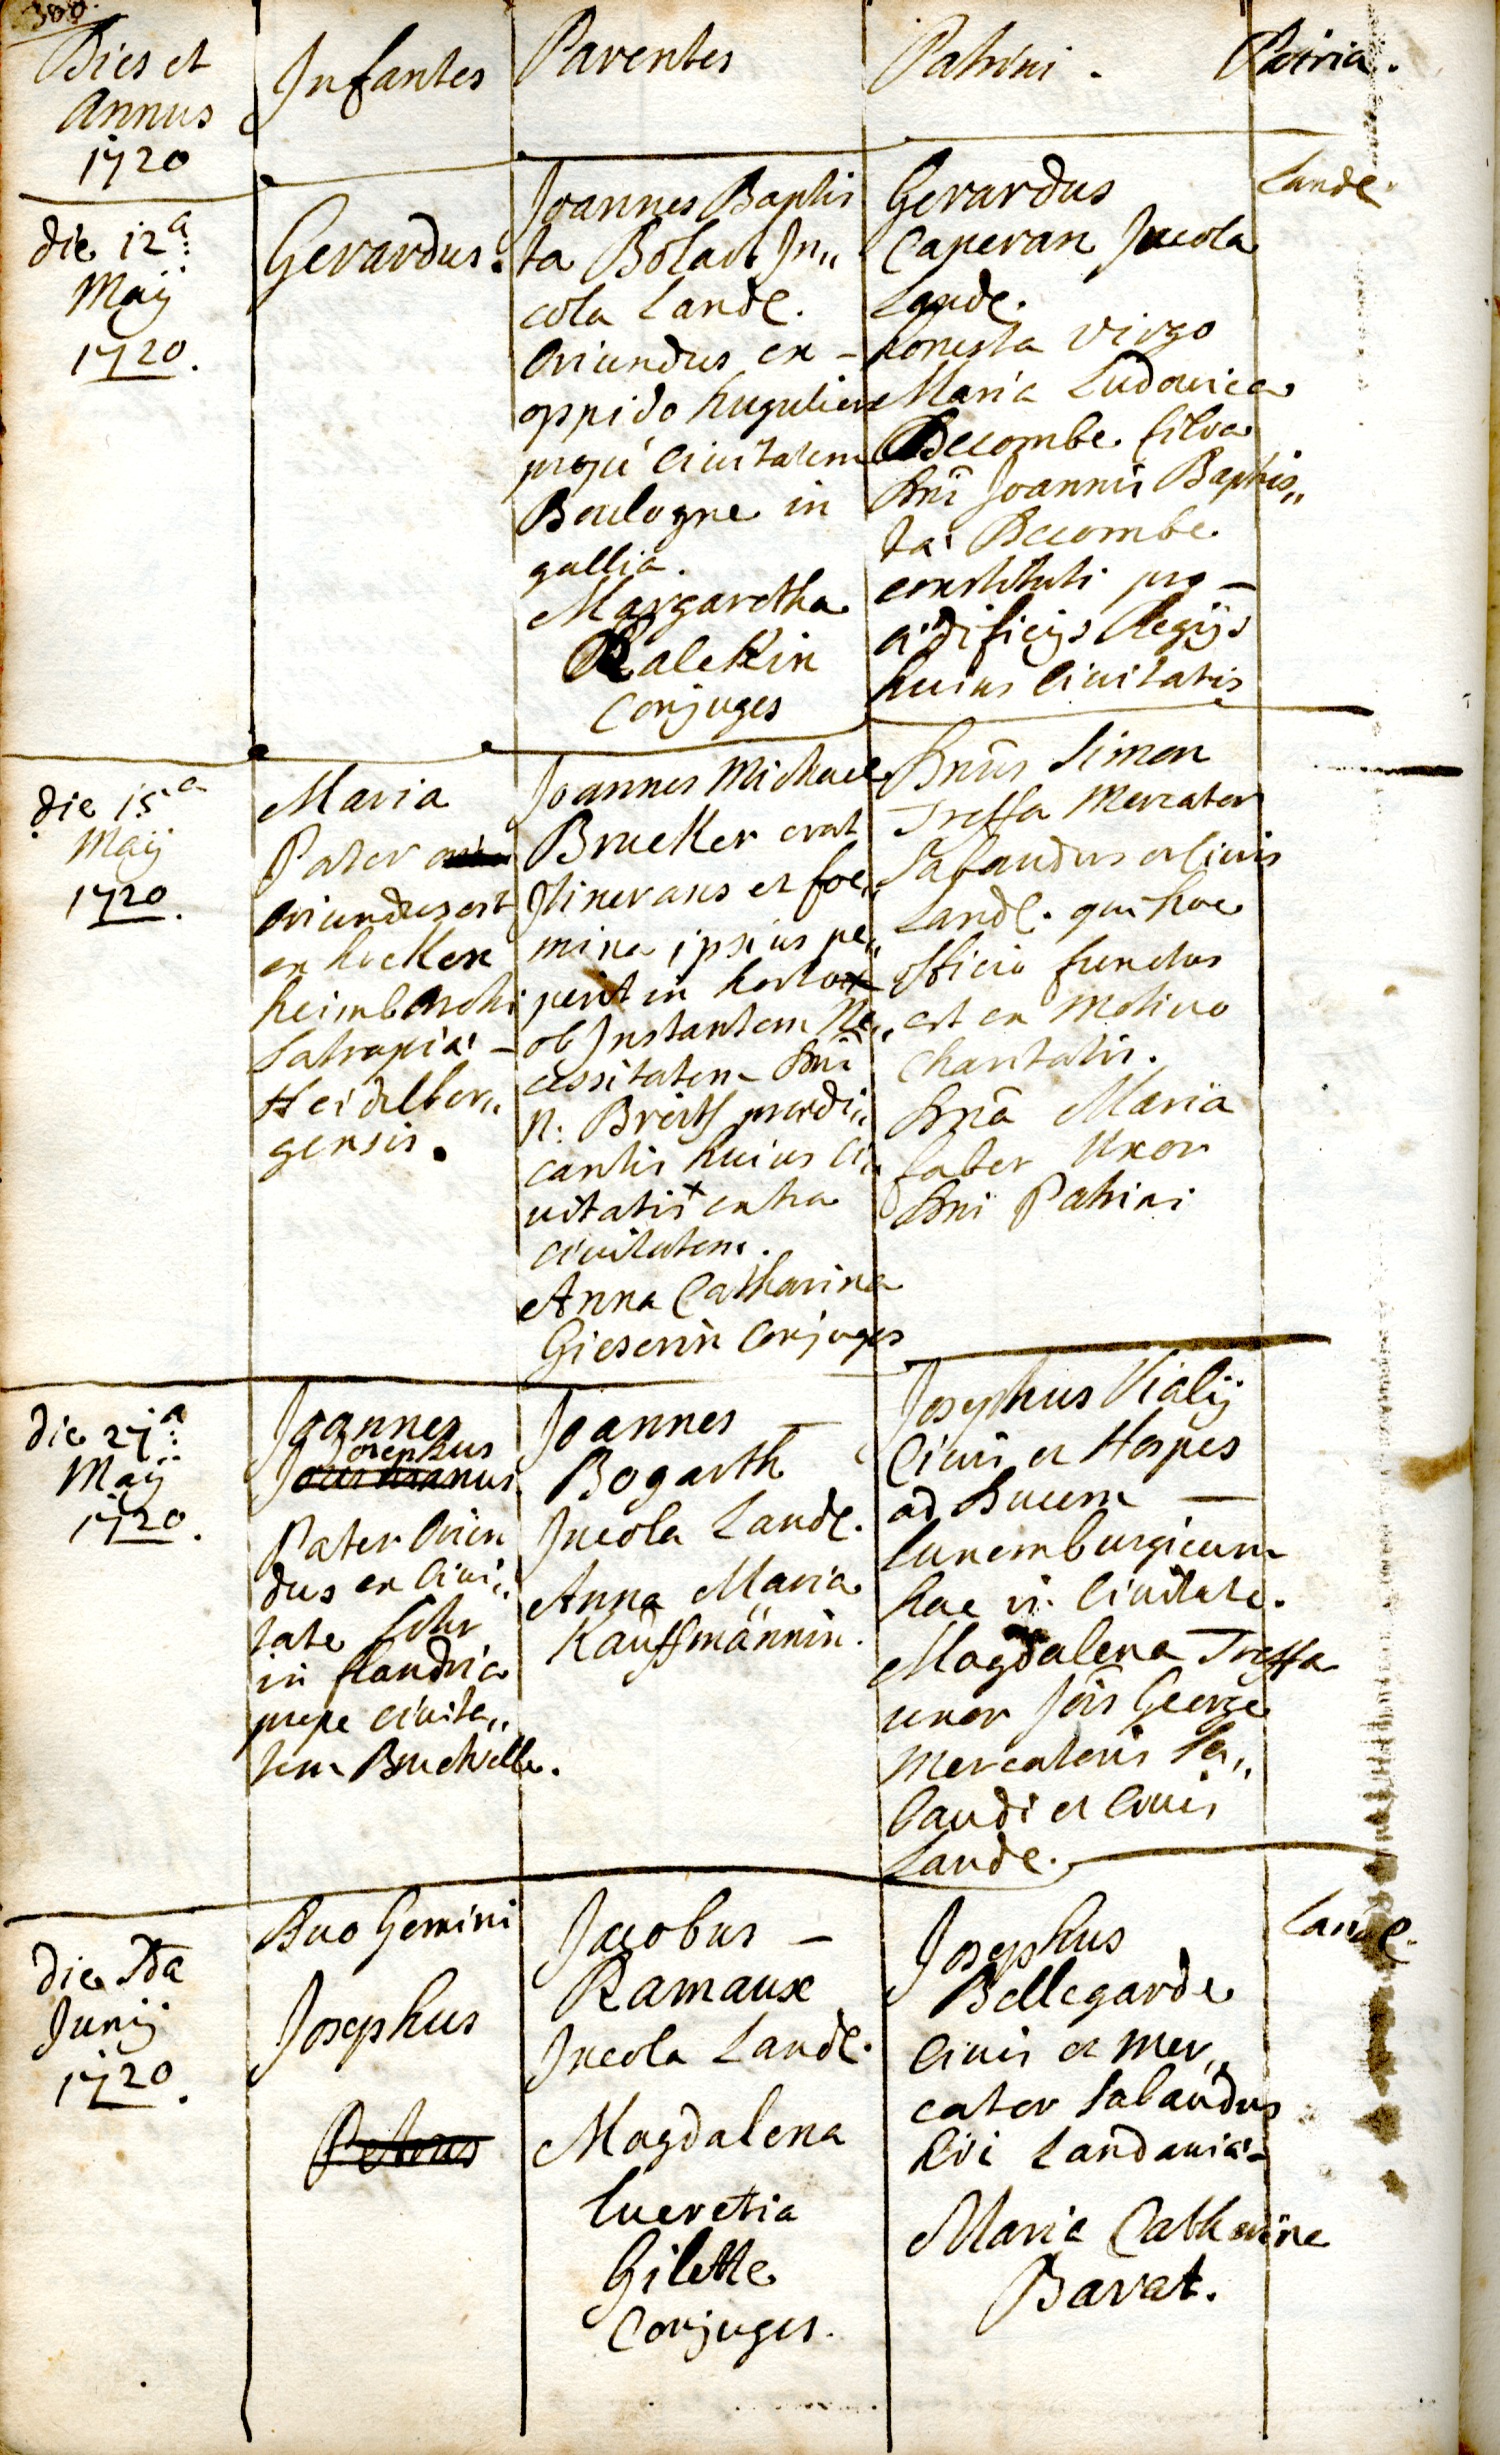 300.
Dies et
Annus
1720
Infantes
Parentes
Patrini.
Patria.
die 12a
Maij
1720.
Gerardus.
Joannes Baptis
ta Bolart In,,
cola Land.
Oriundus ex -
oppido hugulier
propè Civitatem
Boulogne in
gallia.
Margaretha
Ralekin
Conjuges
Gerardus
Caperan Incola
Land.
honesta virgo
Maria Ludovica
Decombe filia
Dni Joannis Baptis,,
ta Decombe
constituti pro -
ædificijs Regijs
huius Civitatis
Land.
die 15a
Maij
1720.
Maria
Pater
oriundus est
ex
heimb
Satrapiæ -
Heidelber,,
gensis.
Joannes Michael
Brucker erat
Itinerans et foe,,
mina ipsius pe,,
perit in horto
ob Instantem Ne,,
cessitatem Dni
N: Breith prædi,,
cantis huius Ci,,
vitatis x extra
civitatem.
Anna Catharina
Gieserin Conjuges
Dnus Simon
Treffa Mercator
Sabaudus et Civis
Land. qui hoc
officio functus
est ex Motivo
Charitatis.
Dna Maria
faber Uxor
Dni Patrini
die 27a
Maij
1720.
Joannes
Josephus
Pater Oriun
dus ex Civi,,
tate
in flandria
prope civita,,
tem
Joannes -
Bogarth
Incola Land.
Anna Maria
Kauffmännin.
Josephus Vialij
Civis et Hospes
ad Ducem -
Luxemburgicum
hac in Civitate.
Magdalena Treffa
uxor Jois George
Mercatoris Sa,,
baudi et Civis
Land.
die 1ma
Junij
1720.
Duo Gemini
Josephus
Petrus
Jacobus -
Ramaux
Incola Land.
Magdalena
Lucretia
Gilette
Conjuges.
Josephus
Bellegarde
Civis et Mer,,
cator Sabaudus
hic Landaviæ
Maria Catharina
Bavat.
Land.